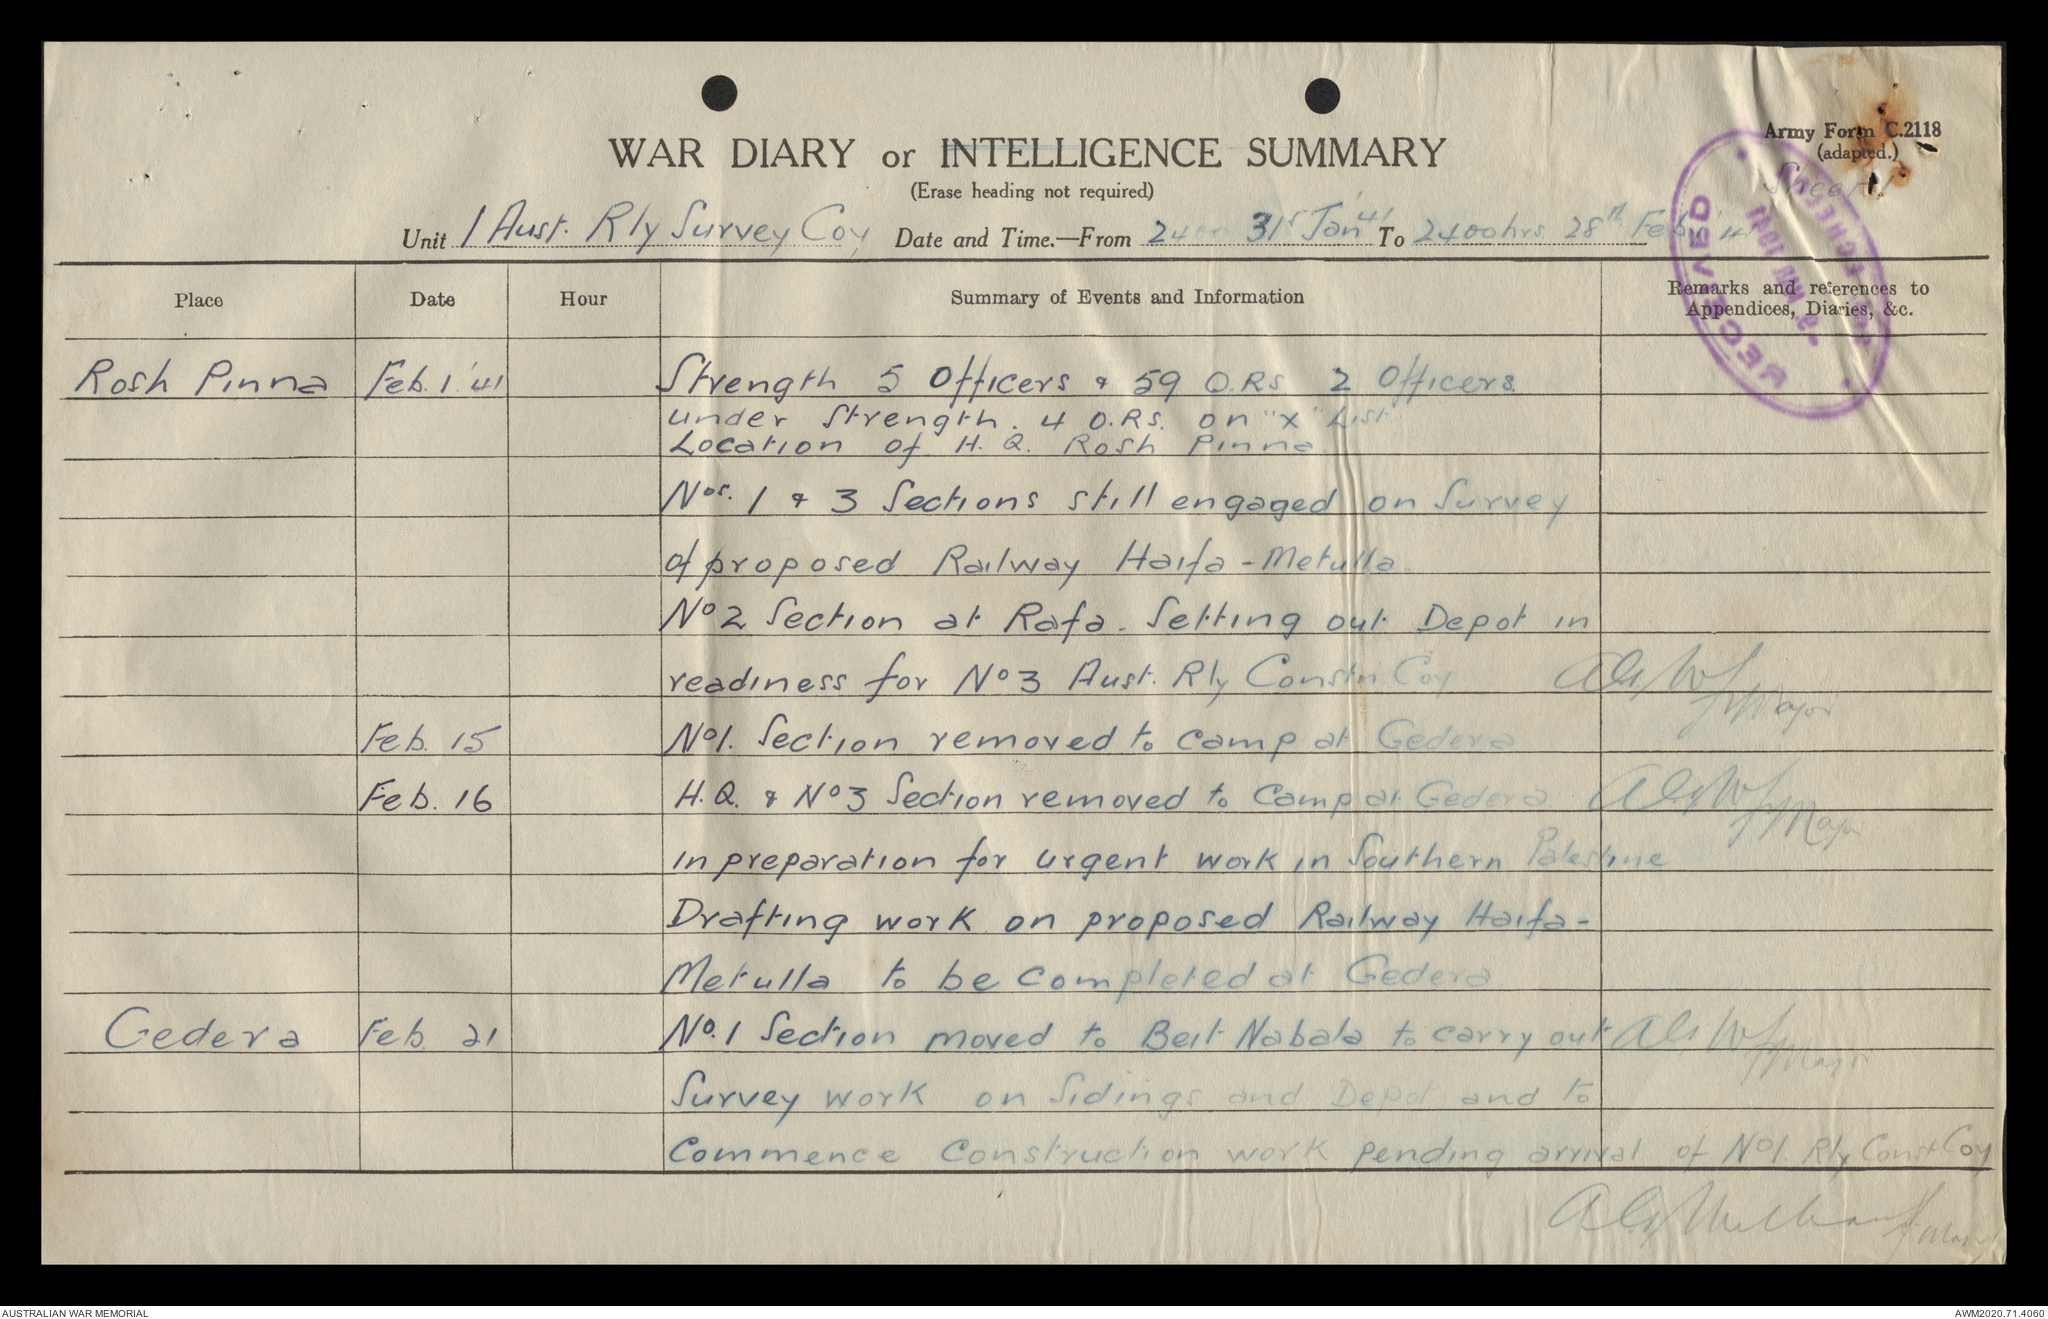 Army Form C.2118
WAR DIARY or INTELLIGENCE SUMMARY
(adapted.)
(Erase heading not required)
Sheet 1
Unit 1 Aust. Rly Survey Coy Date and Time.—From 2400 31st Jan '41 To 2400hrs 28th Feb '41
RECEIVED
Place Date Hour Summary of Events and Information Remarks and references to Appendices, Diaries, &c.
Rosh Pinna Feb. 1 '41 Strength 5 Officers & 59 O.Rs 2 Officers
under strength. 4 O.Rs. on "X" List
Location of H.Q. Rosh Pinna
Nos. 1 & 3 Sections still engaged on Survey
of proposed Railway Haifa - Metulla.
No 2 Section at Rafa. Setting out Depot in
readiness for No 3 Aust. Rly Constn. Coy Major
Feb. 15 No 1. Section removed to camp at Gedera
Feb. 16 H.Q. & No 3 Section removed to camp at Gedera Major
in preparation for urgent work in Southern Palestine
Drafting work on proposed Railway Haifa -
Metulla to be completed at Gedera
Gedera Feb. 21 No. 1 Section moved to Beit Nabala to carry out Major
Survey work on Sidings and Depot and to
commence construction work pending arrival of No 1. Rly Const Coy
Major
AUSTRALIAN WAR MEMORIAL AWM2020.71.4060